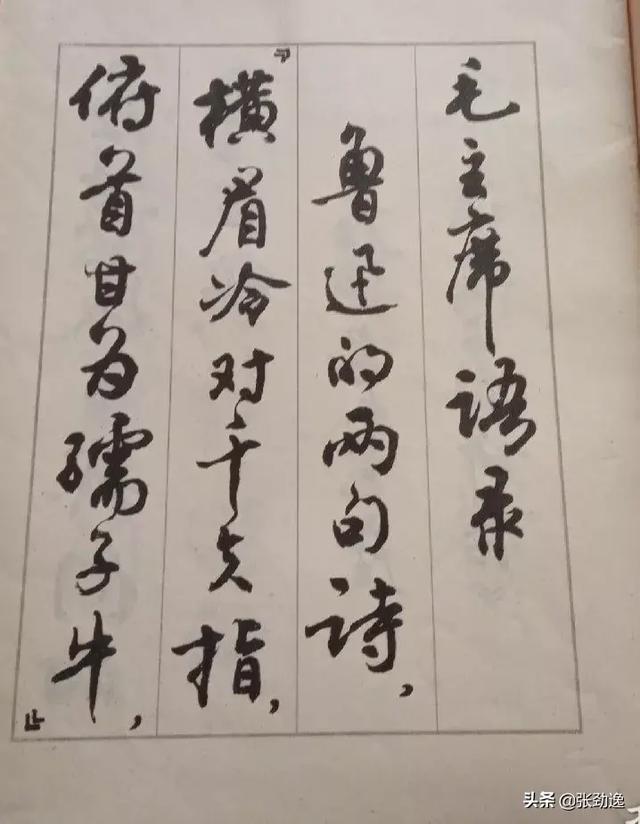 毛主席语录
鲁迅的两句诗，
﹃横眉冷对千夫指，
俯首甘为孺子牛，﹄
头条 @张劲逸